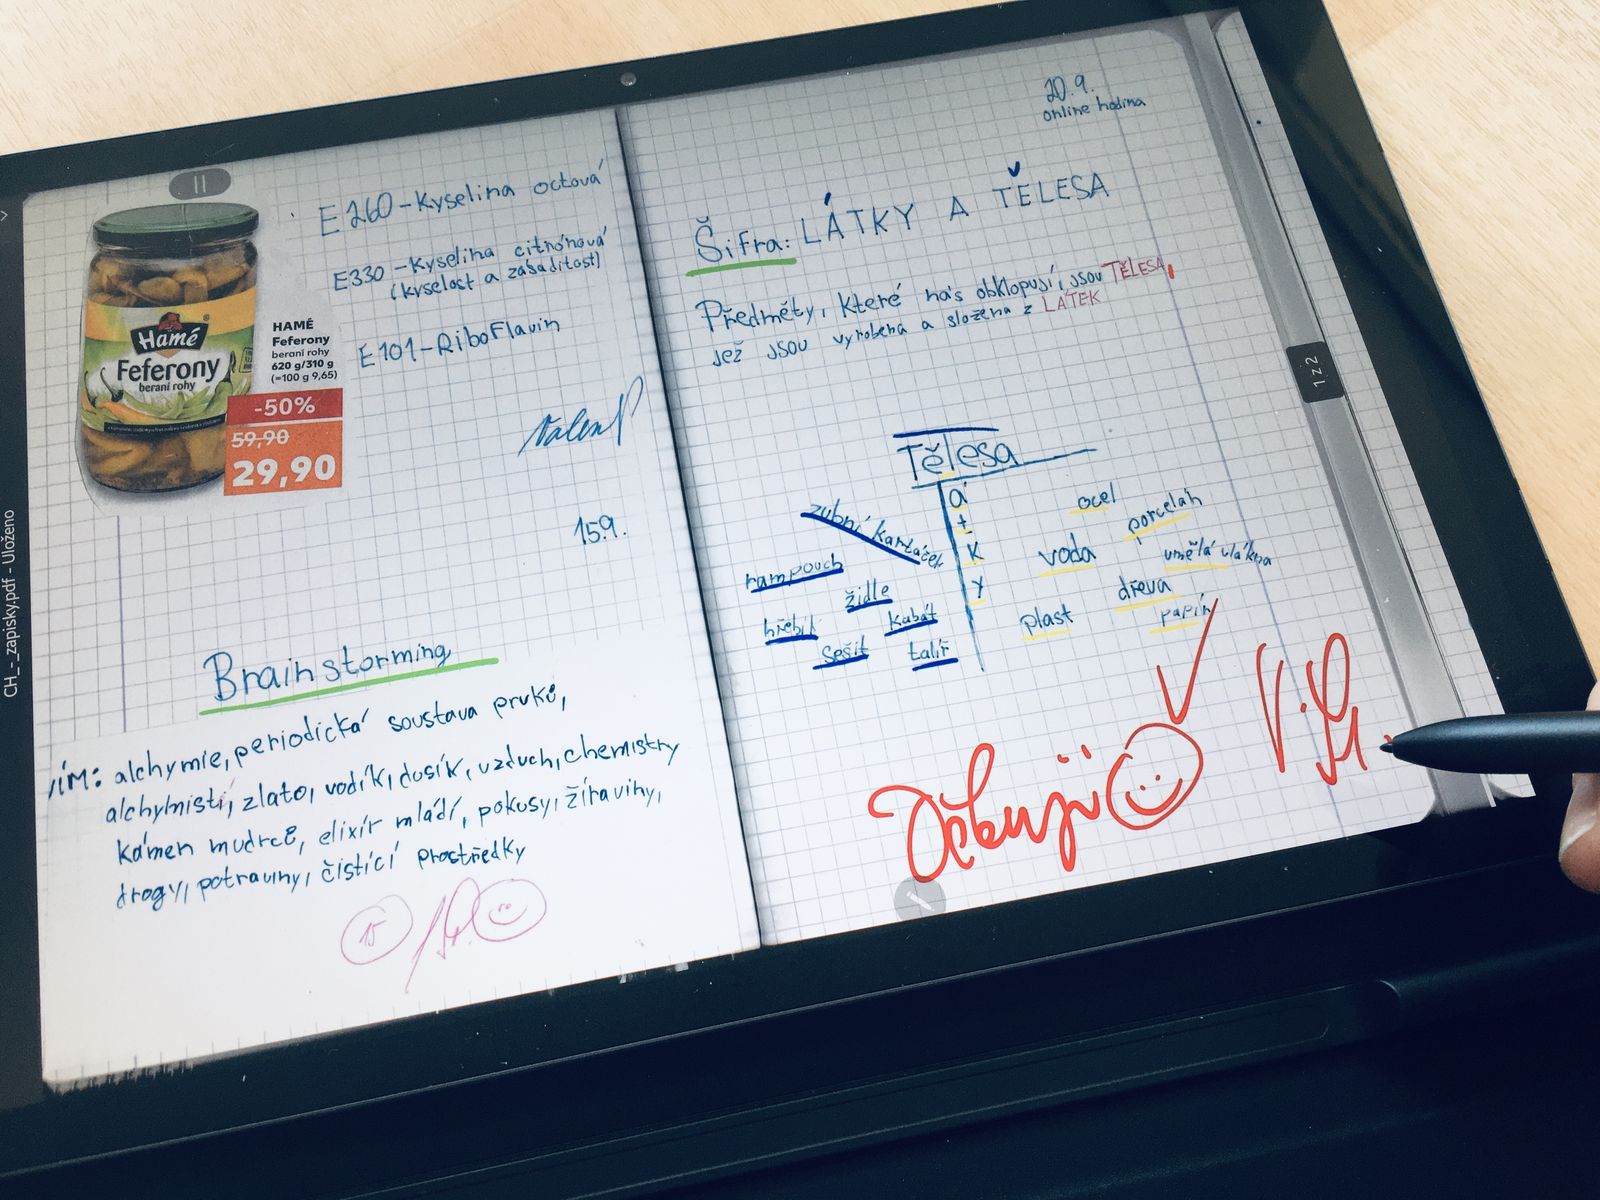 CH_-_zapisky.pdf - Uloženo
Hamé
Feferony
beraní rohy
HAMÉ
Feferony
beraní rohy
620 g/310 g
(=100 g 9,65)
-50%
59,90
29,90
E260-Kyselina octová
E330-Kyselina citrónová
(kyselost a zásaditost)
E101-Riboflavin
15.9.
Brainstorming
VÍM: alchymie, periodická soustava prvků,
alchymisti, zlato, vodík, dusík, vzduch, chemistry
kámen mudrců, elixír mládí, pokusy, žíraviny,
drogy, potraviny, čistící prostředky
15
20.9.
online hodina
Šifra: LÁTKY A TĚLESA
Předměty, které nás obklopují, jsou TĚLESA,
jež jsou vyrobena a složena z LÁTEK
Tělesa
látky
zubní kartáček
rampouch
židle
hřebík
kabát
sešit
talíř
ocel
porcelán
voda
umělá vlákna
dřeva
plast
papír
Děkuji
1 z 2